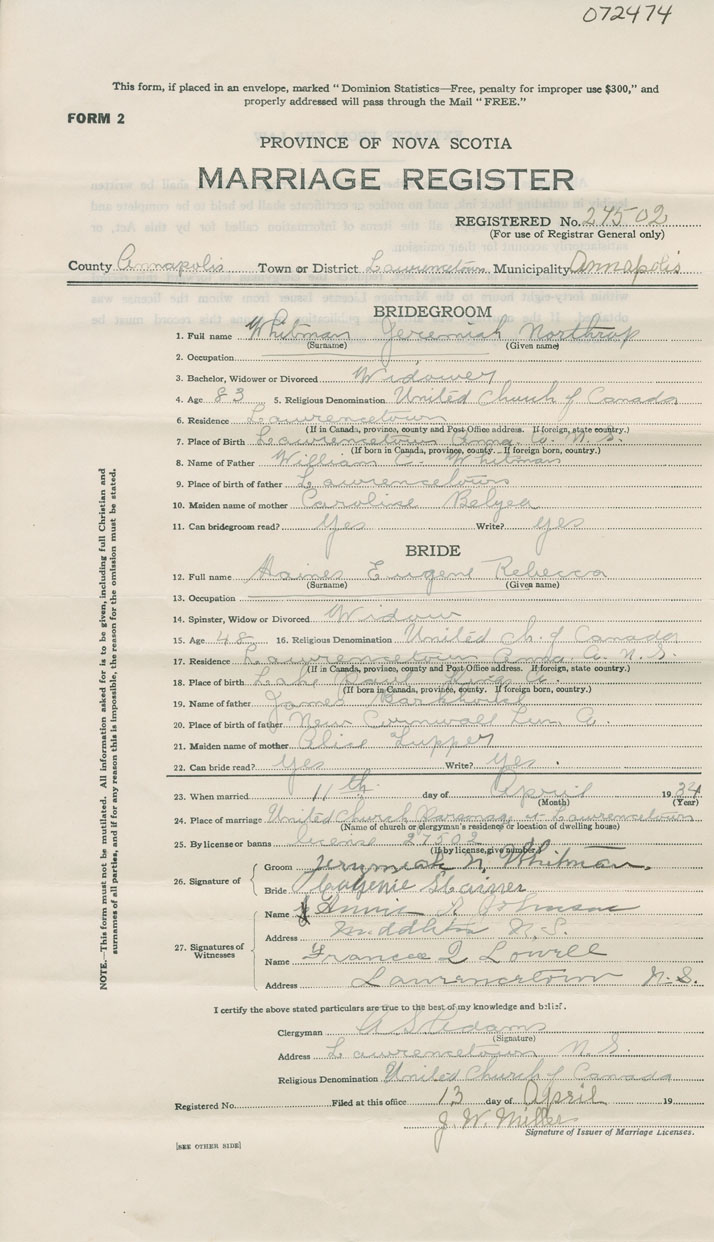 072474
This form, if placed in an envelope, marked "Dominion Statistics—Free, penalty for improper use $300," and
properly addressed will pass through the Mail "FREE."
FORM 2
PROVINCE OF NOVA SCOTIA
MARRIAGE REGISTER
REGISTERED No. 27502
(For use of Registrar General only)
County Annapolis Town or District Lawrencetown Municipality Annapolis
BRIDEGROOM
1. Full name Whitman Jeremiah Northrop
(Surname) (Given name)
2. Occupation
3. Bachelor, Widower or Divorced Widower
4. Age 83 5. Religious Denomination United Church of Canada
6. Residence Lawrencetown
(If in Canada, province, county and Post Office address. If foreign, state country.)
7. Place of Birth Lawrencetown Anna. Co. N.S.
(If born in Canada, province, county. If foreign born, country.)
8. Name of Father William C. Whitman
9. Place of birth of father Lawrencetown
10. Maiden name of mother Caroline Belyea
11. Can bridegroom read? Yes Write? Yes
BRIDE
12. Full name Haines Eugene Rebecca
(Surname) (Given name)
13. Occupation
14. Spinster, Widow or Divorced Widow
15. Age 48 16. Religious Denomination United Ch. of Canada
17. Residence Lawrencetown Anna. Co. N.S.
(If in Canada, province, county and Post Office address. If foreign, state country.)
18. Place of birth Lake Paul Kings Co.
(If born in Canada, province, county. If foreign born, country.)
19. Name of father James
20. Place of birth of father New Cornwall Lun. Co.
21. Maiden name of mother Alice Lupper
22. Can bride read? Yes Write? Yes.
23. When married 11th day of April 1934
(Month) (Year)
24. Place of marriage United Church Parsonage at Lawrencetown
(Name of church or clergyman's residence or location of dwelling house)
25. By license or banns license 27502
(If by license, give number)
26. Signature of
Groom Jeremiah N. Whitman.
Bride Eugenie
27. Signatures of Witnesses
Name Annie R Johnson
Address Middleton N.S.
Name Frances Q Lowell
Address Lawrencetown N.S.
I certify the above stated particulars are true to the best of my knowledge and belief.
Clergyman Adams
(Signature)
Address Lawrencetown N.S.
Religious Denomination United Church of Canada
Registered No. Filed at this office 13 day of April 19
J. W. Miller
Signature of Issuer of Marriage Licenses.
[SEE OTHER SIDE]
NOTE.—This form must not be mutilated. All information asked for is to be given, including full Christian and
surnames of all parties, and if for any reason this is impossible, the reason for the omission must be stated.